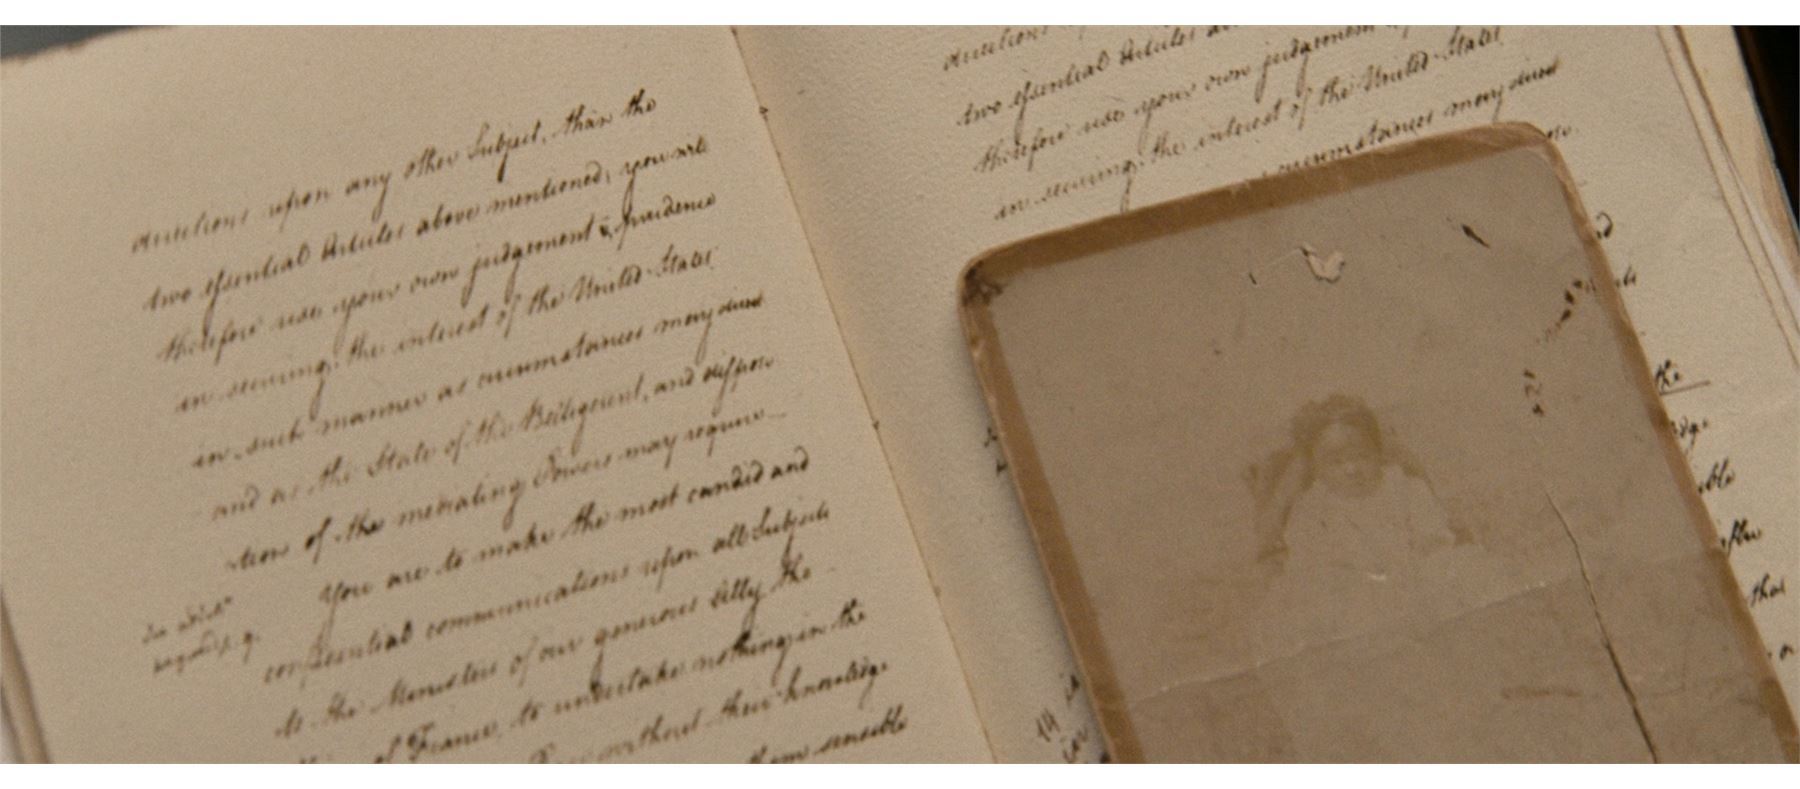 directions upon any other Subject, than the
two essential Articles above mentioned; you will
therefore use your own judgement & prudence
in securing the interest of the United States
in such manner as circumstances may direct
and as the State of the Belligerent, and disposi
tion of the mediating Powers may require
You are to make the most candid and
confidential communications upon all Subjects
to the Ministers of our generous Ally the
of France, to undertake nothing in the
without their knowledge
them sensible
directions
two essential Articles
therefore use your own judgement
in securing the interest of the United States
circumstances may direct
the
14
that